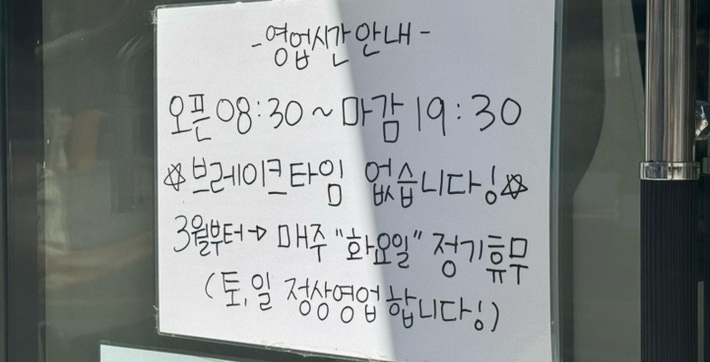 -영업시간 안내-
오픈 08:30 ~ 마감 19:30
☆브레이크타임 없습니다!☆
3월부터→ 매주 "화요일" 정기휴무
(토,일 정상영업합니다!)